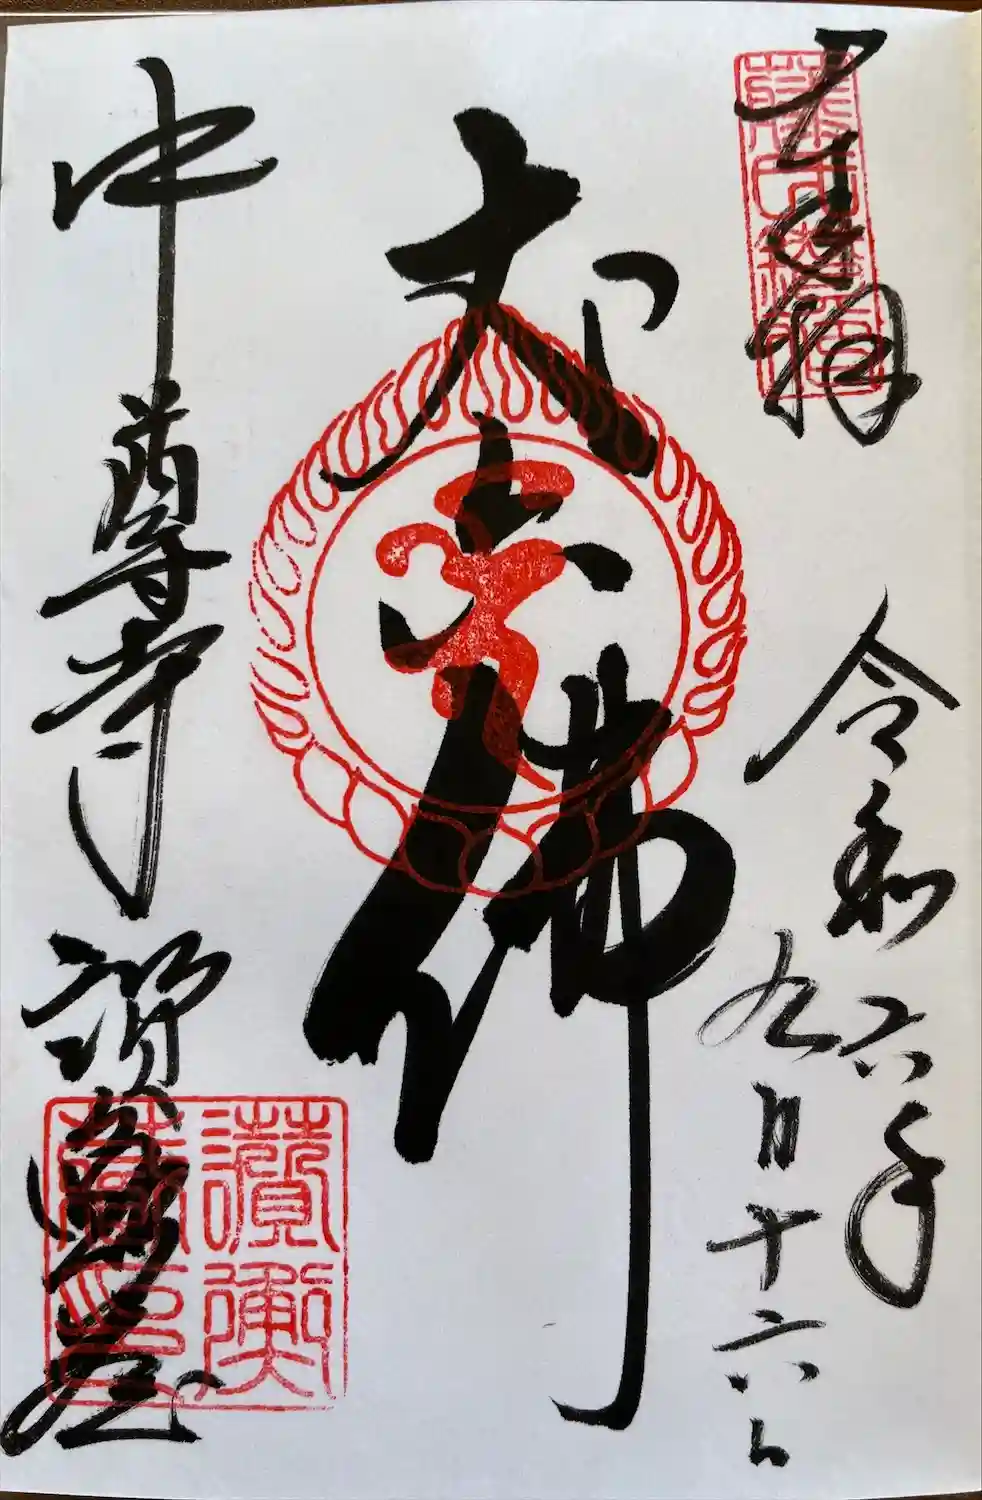 奉拝
令和六年
九月十六日
丈六佛
中尊寺 讃衡蔵
讃衡
蔵印